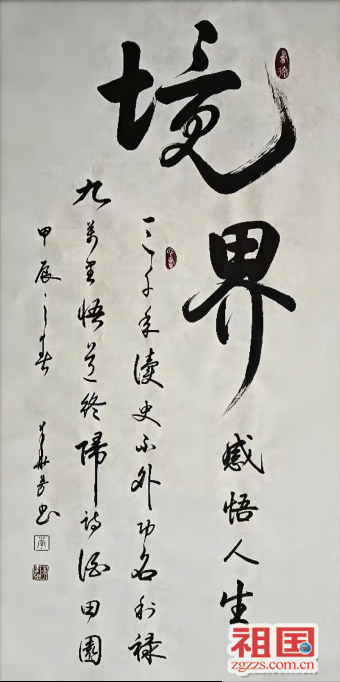 境界
感悟人生
三千年讀史不外功名利禄
九萬里悟道終歸詩酒田園
甲辰之春
书
祖国
zgzzs.com.cn